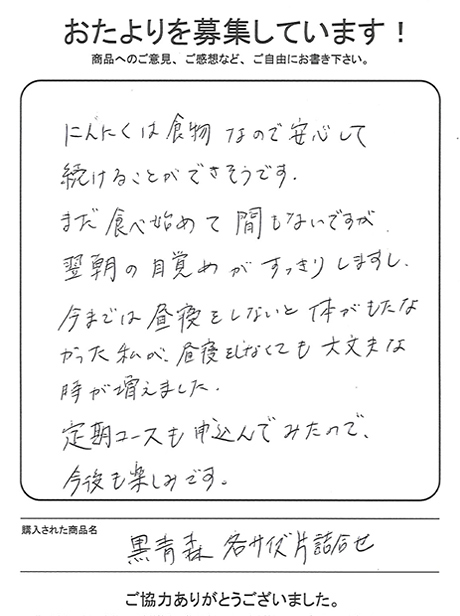 おたよりを募集しています！
商品へのご意見、ご感想など、ご自由にお書き下さい。
にんにくは食物なので安心して
続けることができそうです.
まだ食べ始めて間もないですが、
翌朝の目覚めがすっきりしますし、
今までは昼寝をしないと体がもたな
かった私が、昼寝をしなくても大丈夫な
時が増えました.
定期コースも申込んでみたので、
今後も楽しみです。
購入された商品名
黒青森 各サイズ片詰合せ
ご協力ありがとうございました。